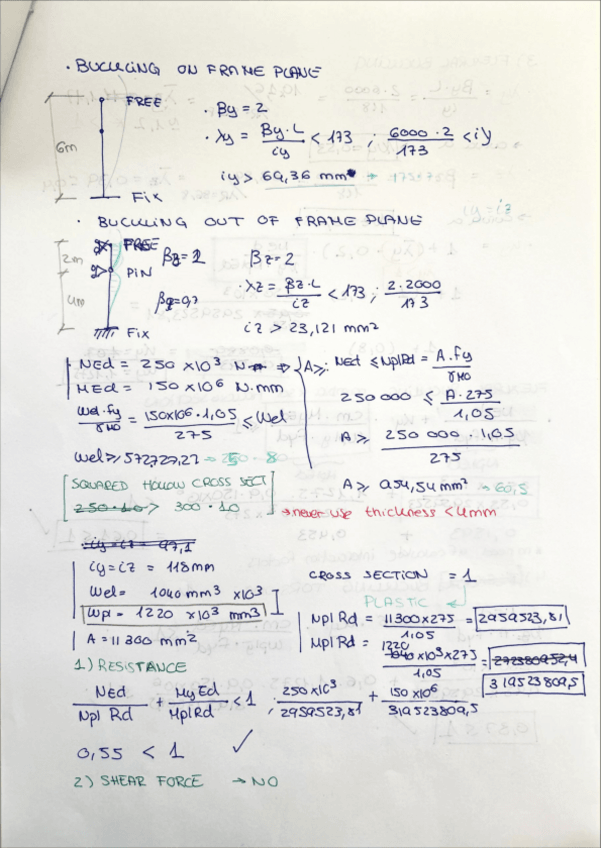 · BUCKLING ON FRAME PLANE
FREE
6m
Fix
· βy = 2
· λy = βy·L / iy < 173 ; 6000·2 / 173 < iy
iy > 69,36 mm
· BUCKLING OUT OF FRAME PLANE
FREE
2m
PIN
4m
Fix
βz = 2
βz = 0,7
βz = 2
· λz = βz·L / iz < 173 ; 2·2000 / 173
iz > 23,121 mm²
NEd = 250 × 10³ N
MEd = 150 × 10⁶ N·mm
Wel·fy / γM0 = 150×10⁶·1,05 / 275 ≤ Wel
Wel ≥ 572727,27 → 250·80
⇒ A ≥: NEd ≤ NplRd = A·fy / γM0
250 000 ≤ A·275 / 1,05
A ≥ 250 000·1,05 / 275
A ≥ 954,54 mm² → 60,5
SQUARED HOLLOW CROSS SECT
250·10 > 300·10
→ never use thickness < 4mm
iy = iz = 97,1
iy = iz = 118mm
Wel = 1040 mm³ ×10³
Wpl = 1220 ×10³ mm³
A = 11300 mm²
CROSS SECTION = 1
PLASTIC ←
Npl Rd = 11300×275 / 1,05 = 2959523,81
Mpl Rd = 1220 1040×10³×275 / 1,05 = 272380952,4
319523809,5
1) RESISTANCE
NEd / Npl Rd + MyEd / MplRd < 1 ; 250×10³ / 2959523,81 + 150×10⁶ / 319523809,5
0,55 < 1 ✓
2) SHEAR FORCE → NO